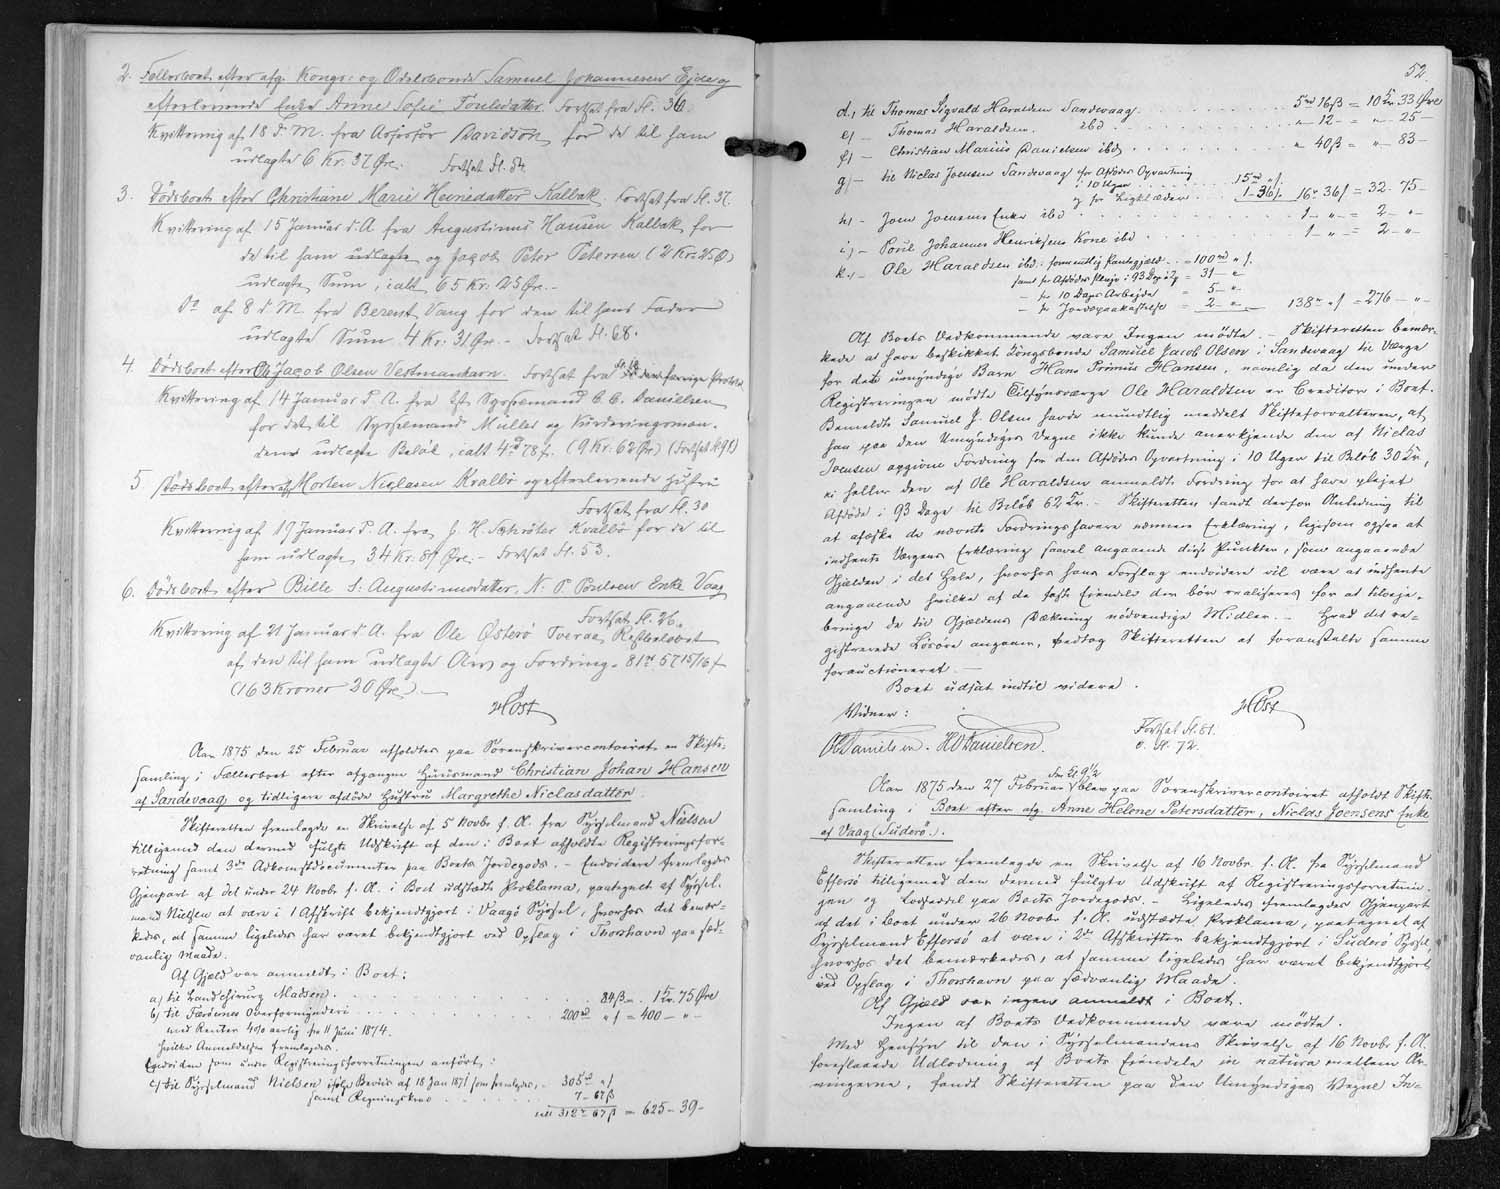 2. Fællesboet efter afg. Kongs- og Odelsbonde Samuel Johannesen Ejde og
efterlevende Enke Anne Sofie Poulsdatter. Fortsat fra fl. 36.
Kvittering af 18 d. M. fra Assessor Davidson for de til ham
udlagte 6 Kr. 37 Øre. Fortsat fl. 54.
3. Dødsboet efter Christiane Marie Heinedatter Kalbak. Fortsat fra fl. 37.
Kvittering af 15 Januar d. A. fra Augustinus Hansen Kalbak for
de til ham udlagte og Jacob Peter Petersen (2 Kr. 25 Ø)
udlagte Sum, ialt 65 Kr. 25 Øre. -
Do af 8 d. M. fra Berent Vang for den til hans Fader
udlagte Sum 4 Kr. 31 Øre. - Fortsat fl. 68.
4. Dødsboet efter Ole Jacob Olsen Vestmanhavn. Fortsat fra den forrige Protokol
Kvittering af 14 Januar d. A. fra Sysselmand C. C. Danielsen
for det til Sysselmand Müller og Vurderingsmæn-
dene udlagte Beløb, ialt 4 rd 78 ß. (9 Kr. 62 Øre) (Fortsat fl. 91)
5 Dødsboet efter afg. Morten Niclasen Kvalbø og efterlevende Hustru
Fortsat fra fl. 30
Kvittering af 19 Januar d. A. fra J. H. Schrøter Kvalbø for de til
ham udlagte 34 Kr. 89 Øre. - Fortsat fl. 53.
6. Dødsboet efter Bille S. Augustinusdatter, N. P. Poulsen Enke Vaag
Fortsat fl. 26.
Kvittering af 21 Januar d. A. fra Ole Østerø Tveraae, Restbeløbet
af den til ham udlagte Arv og Fordring - 81 rd 57 15/16 ß
(163 Kroner 30 Øre). -
HØst
Aar 1875 den 25 Februar afholdtes paa Sorenskrivercontoiret en Skifte-
samling i Fællesboet efter afgangne Huusmand Christian Johan Hansen
af Sandevaag og tidligere afdøde Hustru Margrethe Niclasdatter.
Skifteretten fremlagde en Skrivelse af 5 Novbr f. A. fra Sysselmand Nielsen
tilligemed den dermed fulgte Udskrift af den i Boet afholdte Registreringsfor-
retning samt 3de Adkomstdocumenter paa Boets Jordegods. - Endvidere fremlagdes
Gjenpart af det under 24 Novbr f. A. i Boet udstædte Proklama, paategnet af Syssel-
mand Nielsen at være i 1 Afskrift bekjendtgjort i Vaagø Syssel, hvorhos det bemær-
kedes, at samme ligeledes har været bekjendtgjort ved Opslag i Thorshavn paa sæd-
vanlig Maade.
Af Gjæld var anmeldt i Boet:
a) til Landchirurg Madsen . . . 84 ß = 1 Kr. 75 Øre
b) til Færøernes Overformynderi . . . 200 rd " ß = 400 - " -
med Renter 4% aarlig fra 11 Juni 1874.
hvilke Anmeldelser fremlagdes.
Endvidere som under Registreringsforretningen anført:
c) til Sysselmand Nielsen ifølge Beviis af 18 Jan 1871 som fremlagdes, - 305 rd " ß
samt Regningskrav . . . 7 - 67 ß
ialt 312 rd 67 ß = 625 - 39 -
52.
d.) til Thomas Sigvald Haraldsen Sandevaag . . . 5 rd 16 ß = 10 Kr. 33 Øre
e) - Thomas Haraldsen ibd . . . " - 12 - = " - 25 -
f) - Christian Marius Danielsen ibd . . . " 40 ß = " - 83 -
g) - til Niclas Joensen Sandevaag for Afdødes Opvartning
i 10 Uger . . . 15 rd " ß.
og for Ligklæder . . . 1 - 36 ß. 16 rd 36 ß = 32 - 75 -
h) - Joen Joensens Enke ibd . . . 1 - " - = 2 - " -
i) - Poul Johannes Henriksens Kone ibd . . . 1 - " - = 2 - " -
k.) - Ole Haraldsen ibd: formentlig Pantegjæld . . = 100 rd " ß.
samt for Afdødes Pleje i 93 Dage = 31 - "
- for 10 Dages Arbejde = 5 - "
- for Jordpaakastelse = 2 - " 138 rd " ß = 276 - " -
Af Boets Vedkommende vare Ingen mødte. - Skifteretten bemær-
kede at have beskikket Kongsbonde Samuel Jacob Olsen i Sandevaag til Værge
for det umyndige Barn Hans Primus Hansen, navnlig da den under
Registreringen mødte Tilsynsværge Ole Haraldsen er Creditor i Boet.
Bemeldte Samuel J. Olsen havde mundtlig meddelt Skifteforvalteren, at
han paa den Umyndiges Vegne ikke kunde anerkjende den af Niclas
Joensen opgivne Fordring for den Afdødes Opvartning i 10 Uger til Beløb 30 Kr.,
ei heller den af Ole Haraldsen anmeldte Fordring for at have plejet
Afdøde i 93 Dage til Beløb 62 Kr. - Skifteretten fandt derfor Anledning til
at afæske de nævnte Fordringshavere nærmere Erklæring, ligesom ogsaa at
indhente Værgens Erklæring saavel angaaende disse Punkter, som angaaende
Gjælden i det Hele, hvorhos hans Forslag endvidere vil være at indhente
angaaende hvilke af de faste Eiendele der bør realiseres for at tilveje-
bringe de til Gjældens Dækning nødvendige Midler. - Hvad det re-
gistrerede Løsøre angaaer, vedtog Skifteretten at foranstalte samme
forauctioneret. -
Boet udsat indtil videre.
Vidner: HØst
Danielsen. HO Danielsen. Fortsat fl. 61.
o. fl. 72.
Aar 1875 den 27 Februar Fm Kl 9½ blev paa Sorenskrivercontoiret afholdt Skifte-
samling i Boet efter afg. Anne Helene Petersdatter, Niclas Joensens Enke
af Vaag (Suderø).
Skifteretten fremlagde en Skrivelse af 16 Novbr f. A. fra Sysselmand
Effersø tilligemed den dermed fulgte Udskrift af Registreringsforretnin-
gen og Lodseddel paa Boets Jordegods. - Ligeledes fremlagdes Gjenpart
af det i Boet under 26 Novbr f. A. udstædte Proklama, paategnet af
Sysselmand Effersø at være i 2de Afskrifter bekjendtgjort i Suderø Syssel,
hvorhos det bemærkedes, at samme ligeledes har været bekjendtgjort
ved Opslag i Thorshavn paa sædvanlig Maade.
Af Gjæld var ingen anmeldt i Boet.
Ingen af Boets Vedkommende vare mødte.
Med Hensyn til den i Sysselmandens Skrivelse af 16 Novbr f. A.
foreslaaede Udlodning af Boets Eiendele in natura mellem Ar-
vingerne, fandt Skifteretten paa den Umyndiges Vegne In-